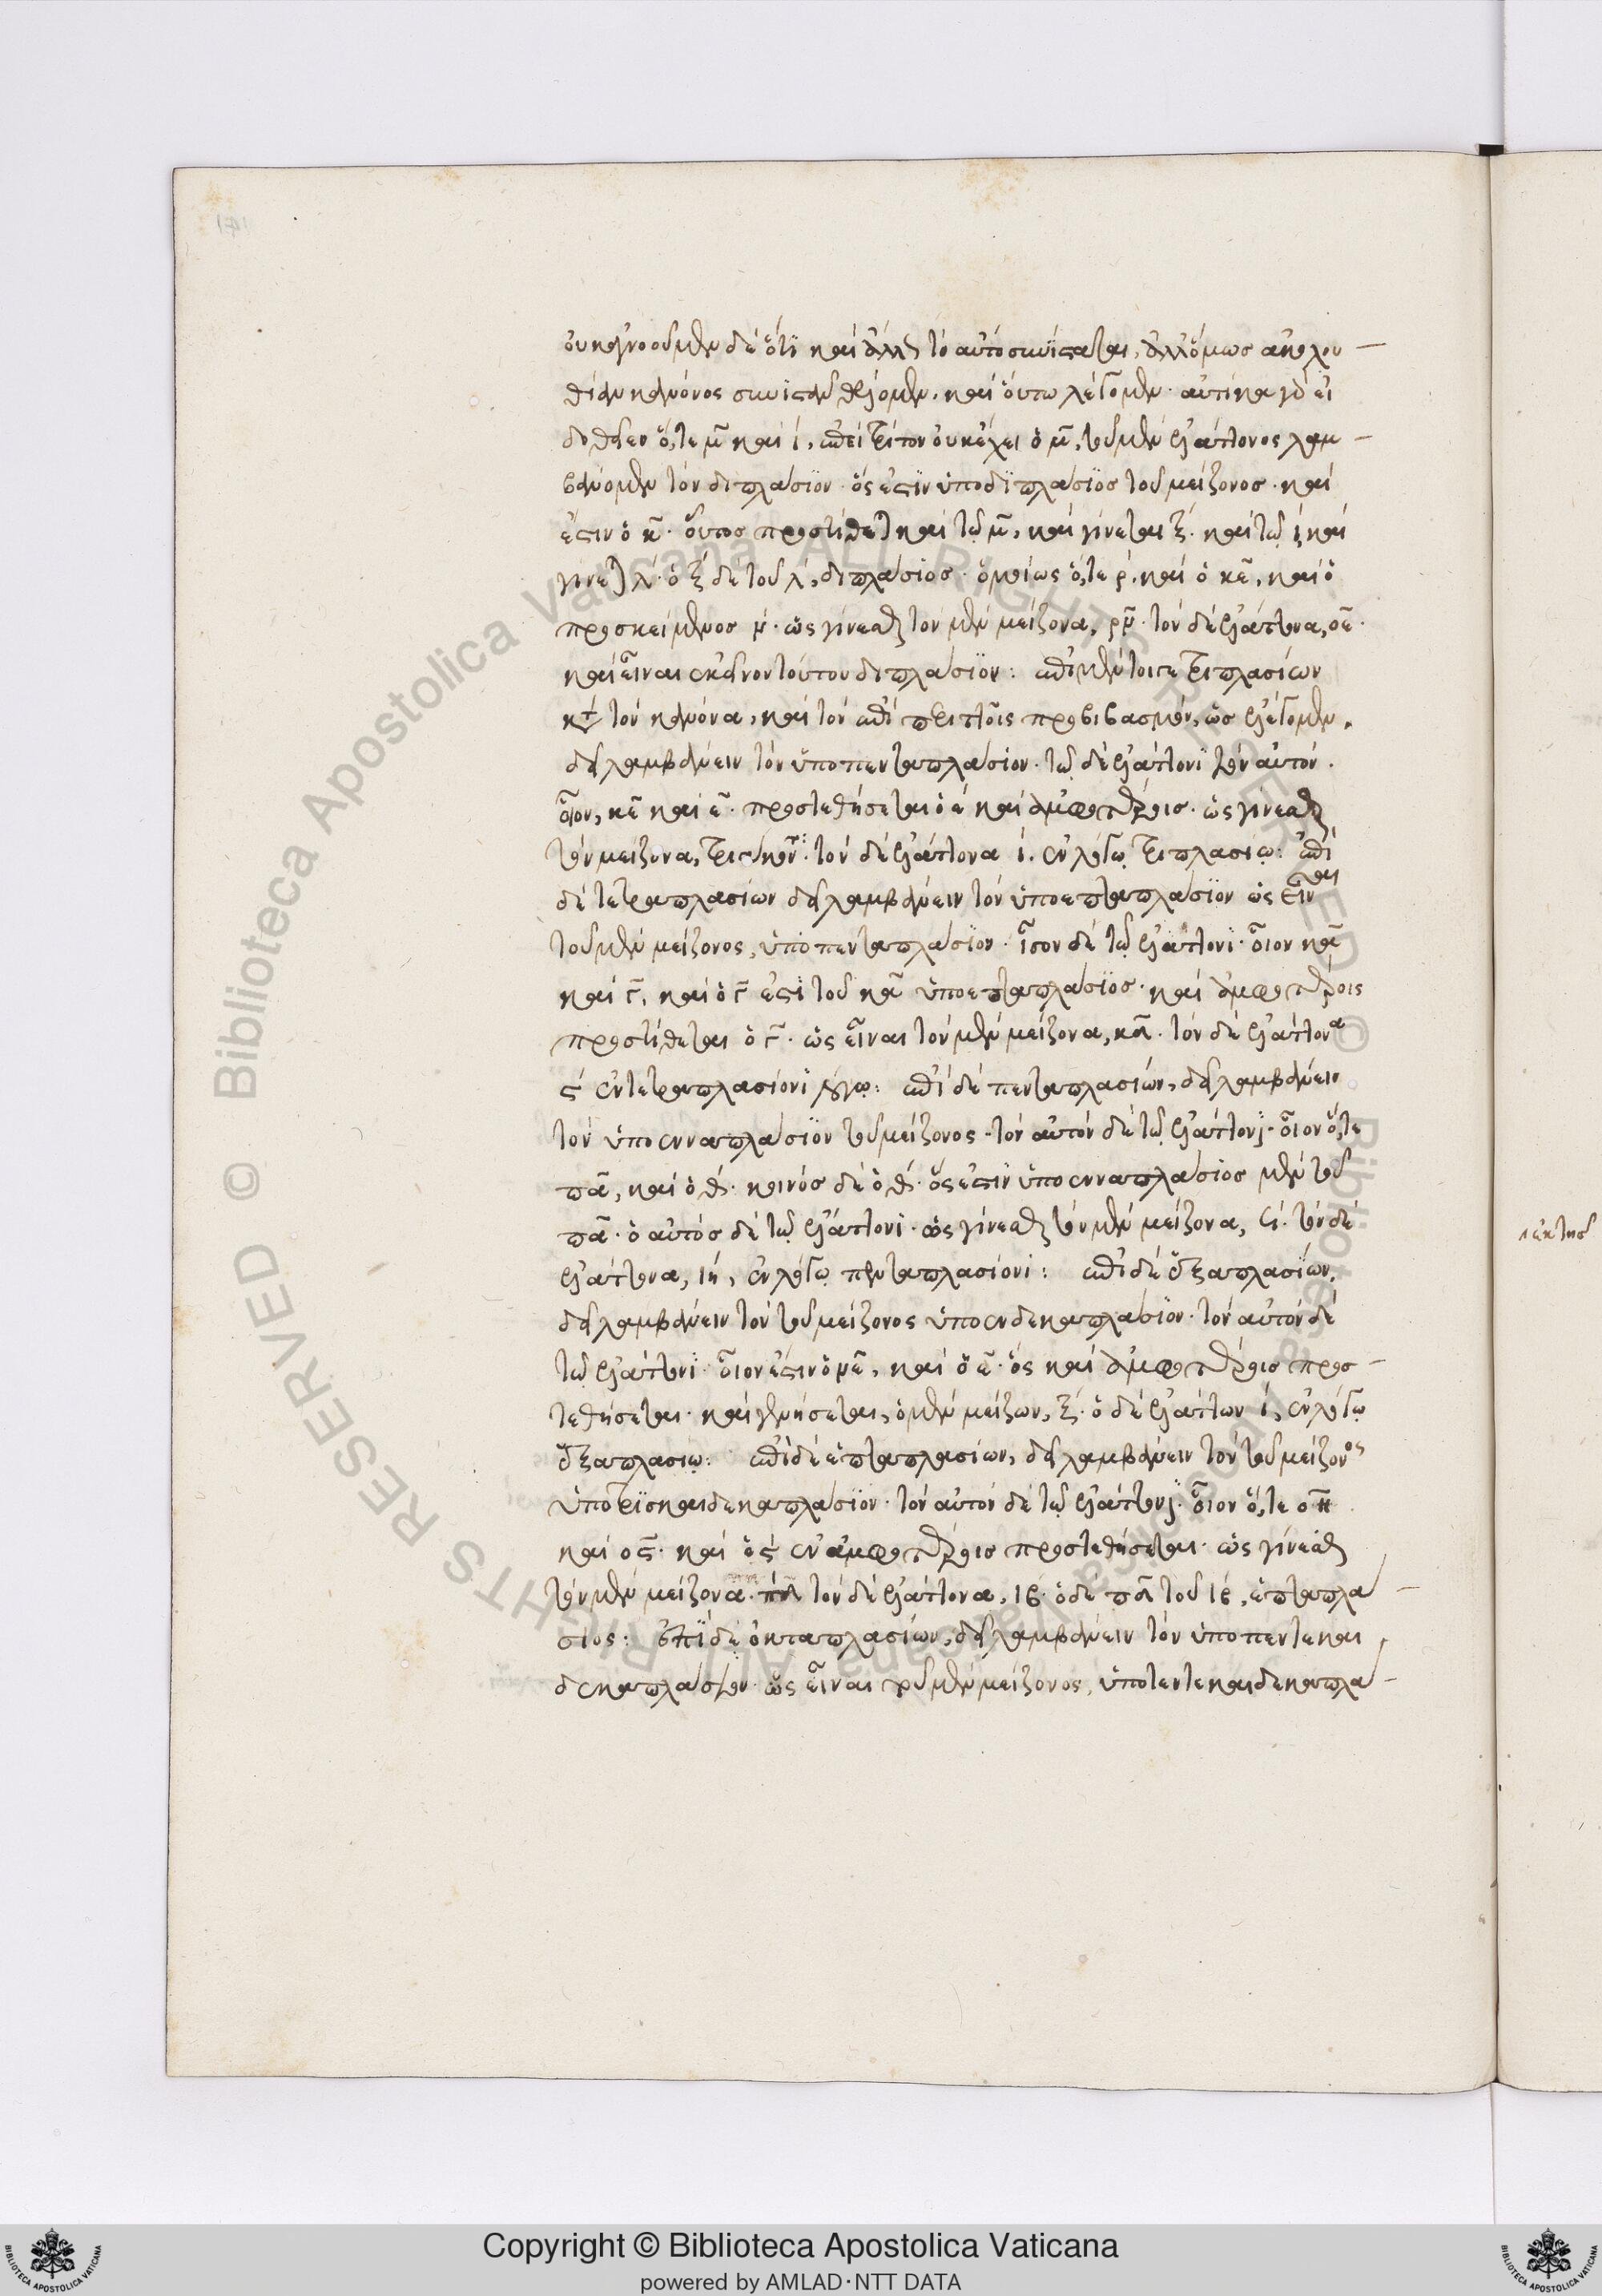 οὐκ ἀγνοοῦμεν δὲ ὅτι καὶ ἄλλ τὸ αὐτὸ συνίσταται, ἀλλ' ὅμως ἀκολου-
θίαν κανόνος συνιστᾶν θέλομεν. καὶ οὕτω λέγομεν. αὐτίκα γὰρ εἰ
δοθεῖεν ὅ,τε μ̅ καὶ ί, ἐπεὶ τρίτον οὐκ ἔχει ὁ μ̅, τοῦ μὲν ἐλάττονος λαμ-
βάνομεν τὸν διπλάσιον. ὅς ἐστιν ὑποδιπλάσιος τοῦ μείζονος. καὶ
ἔστιν ὁ κ̅. οὗτος προστίθεται καὶ τῷ μ̅, καὶ γίνεται ξ. καὶ τῷ ί καὶ
γίνεται λ. ὁ ξ δὲ τοῦ λ, διπλάσιος. ὁμοίως ὅ,τε ρ. καὶ ὁ κε̅, καὶ ὁ
προσκείμενος ν. ὡς γίνεσθαι τὸν μὲν μείζονα, ρν̅. τὸν δὲ ἐλάττονα, οε̅.
καὶ εἶναι ἐκεῖνον τούτου διπλάσιον: ἐπὶ μέντοιγε τριπλασίων
κατὰ τὸν κανόνα, καὶ τὸν ἐπὶ περιττοῖς προβιβασμὸν, ὡς ἐλέγομεν.
δεῖ λαμβάνειν τὸν ὑποπενταπλάσιον. τῷ δὲ ἐλάττονι τὸν αὐτόν.
οἷον, κε̅ καὶ ε̅. προστεθήσεται ὁ ε καὶ ἀμφοτέροις. ὡς γίνεσθαι
τὸν μείζονα, τριάκον. τὸν δὲ ἐλάττονα ί. ἐν λόγῳ τριπλασίῳ: ἐπὶ
δὲ τετραπλασίων δεῖ λαμβάνειν τὸν ὑποεπταπλάσιον ὡς εἶναι
τοῦ μὲν μείζονος, ὑποπενταπλάσιον. ἴσον δὲ τῷ ἐλάττονι. οἷον κα̅
καὶ γ̅, καὶ ὁ γ̅ ἐστὶ τοῦ κα̅ ὑποεπταπλάσιος. καὶ ἀμφοτέροις
προστίθεται ὁ γ̅. ὡς εἶναι τὸν μὲν μείζονα, κδ̅. τὸν δὲ ἐλάττονα
ϛ ἐν τετραπλασίονι λόγῳ: ἐπὶ δὲ πενταπλασίων, δεῖ λαμβάνειν
τὸν ὑποενναπλάσιον τοῦ μείζονος. τὸν αὐτὸν δὲ τῷ ἐλάττονι. οἷον ὅ,τε
πα̅, καὶ ὁ θ. κοινὸς δὲ ὁ θ. ὅς ἐστιν ὑποενναπλάσιος μὲν τοῦ
πα̅. ὁ αὐτὸς δὲ τῷ ἐλάττονι. ὡς γίνεσθαι τὸν μὲν μείζονα, ϟ. τὸν δὲ
ἐλάττονα, ιη, ἐν λόγῳ πενταπλασίονι: ἐπὶ δὲ ἑξαπλασίων,
δεῖ λαμβάνειν τὸν τοῦ μείζονος ὑποενδεκαπλάσιον. τὸν αὐτὸν δὲ
τῷ ἐλάττονι. οἷον ἔστιν ὁ νε̅, καὶ ὁ ε̅. ὃς καὶ ἀμφοτέροις προσ-
τεθήσεται. καὶ γενήσεται, ὁ μὲν μείζων, ξ. ὁ δὲ ἐλάττων ί, ἐν λόγῳ
ἑξαπλασίῳ: ἐπὶ δὲ ἑπταπλασίων, δεῖ λαμβάνειν τὸν τοῦ μείζονος
ὑποτρισκαιδεκαπλάσιον. τὸν αὐτὸν δὲ τῷ ἐλάττονι. οἷον ὅ,τε οη̅
καὶ ὁ ϛ̅. καὶ ὁ ϛ ἐν ἀμφοτέροις προστεθήσεται. ὡς γίνεσθαι
τὸν μὲν μείζονα. πδ̅ τὸν δὲ ἐλάττονα, ιβ. ὁ δὲ πδ̅ τοῦ ιβ, ἑπταπλά-
σιος: ἐπὶ δὲ ὀκταπλασίων, δεῖ λαμβάνειν τὸν ὑποπεντεκαι
δεκαπλάσιον. ὡς εἶναι τοῦ μὲν μείζονος, ὑποπεντεκαιδεκαπλά-